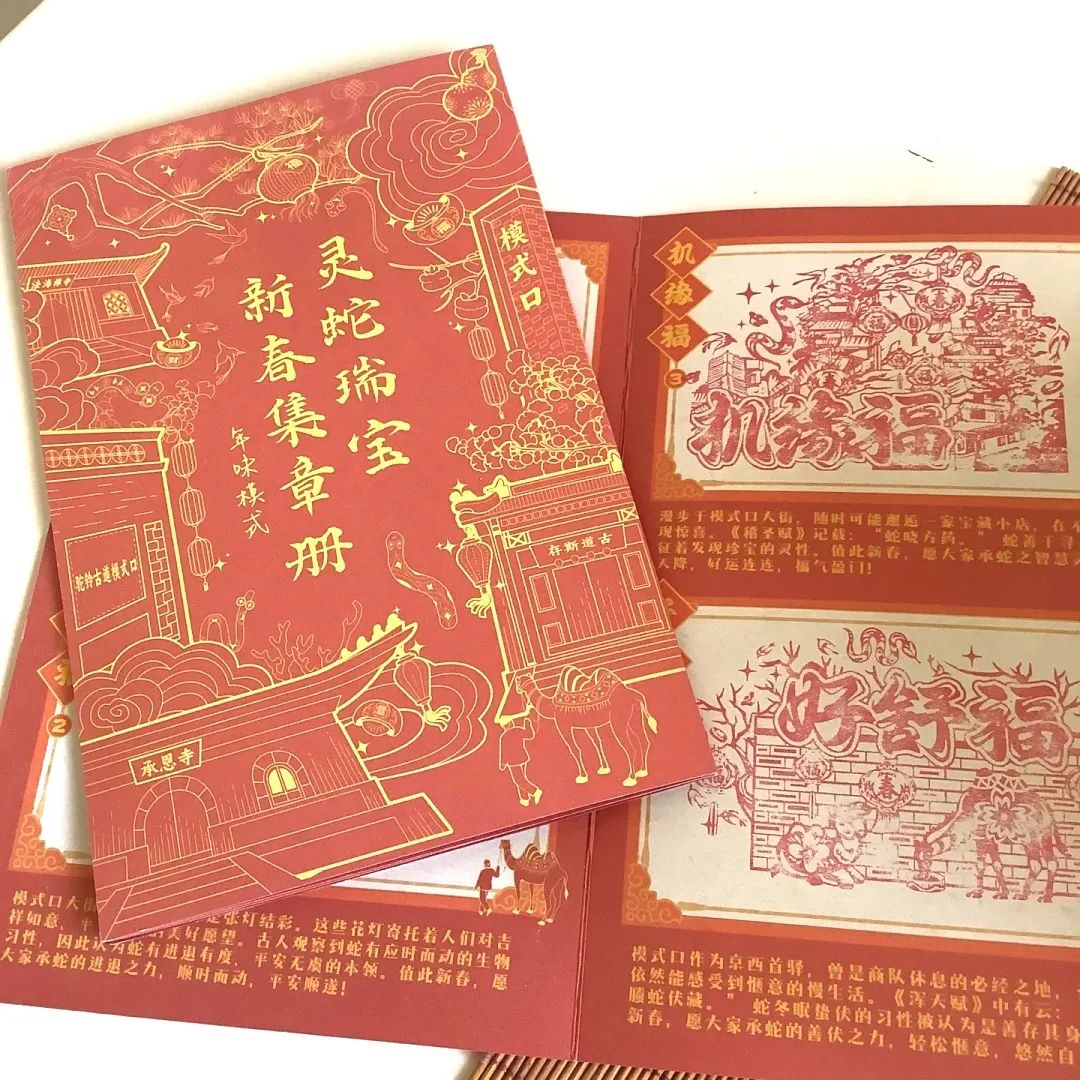 灵蛇瑞宝
新春集章册
年味模式
模式口
法海禅寺
福
财
驼铃古道模式口
存斯道古
承恩寺
机缘福
3
机缘福
春
漫步于模式口大街，随时可能邂逅一家宝藏小店，在不
现惊喜。《稽圣赋》记载："蛇晓方药。"蛇善于寻
征着发现珍宝的灵性。值此新春，愿大家承蛇之智慧
天降，好运连连，福气盈门！
好舒福
福
春
福
模式口作为京西首驿，曾是商队休息的必经之地，
依然能感受到惬意的慢生活。《浑天赋》中有云：
螣蛇伏藏。"蛇冬眠蛰伏的习性被认为是善存其身
新春，愿大家承蛇的善伏之力，轻松惬意，悠然自
2
模式口大街
张灯结彩。这些花灯寄托着人们对吉
祥如意、
美好愿望。古人观察到蛇有应时而动的生物
习性，因此认为蛇有进退有度、平安无虞的本领。值此新春，愿
大家承蛇的进退之力，顺时而动，平安顺遂！